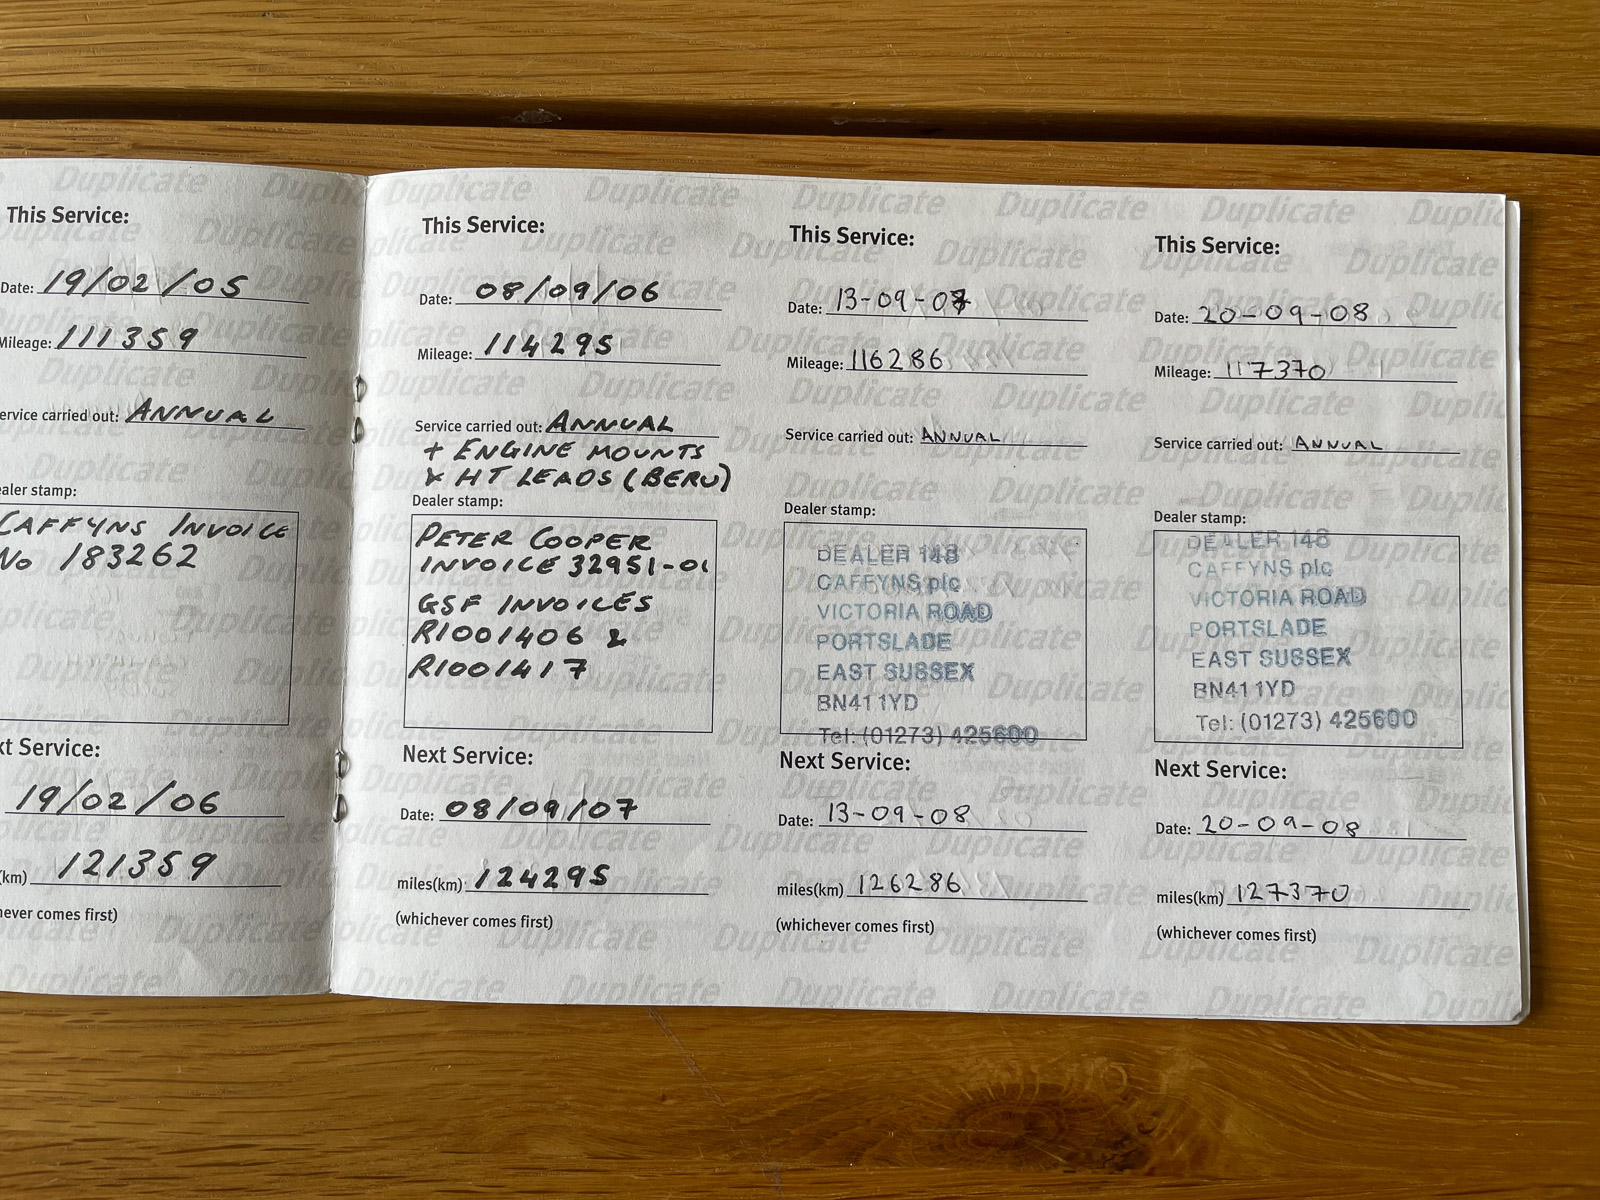 This Service:
Date: 19/02/05
Mileage: 111359
ervice carried out: ANNUAL
ealer stamp:
CAFFYNS INVOICE
No 183262
xt Service:
19/02/06
(km) 121359
never comes first)
This Service:
Date: 08/09/06
Mileage: 114295
Service carried out: ANNUAL
+ ENGINE MOUNTS
& HT LEADS (BERU)
Dealer stamp:
PETER COOPER
INVOICE 32951-01
GSF INVOICES
R1001406 &
R1001417
Next Service:
Date: 08/09/07
miles(km) 124295
(whichever comes first)
This Service:
Date: 13-09-07
Mileage: 116286
Service carried out: ANNUAL
Dealer stamp:
DEALER 148
CAFFYNS plc
VICTORIA ROAD
PORTSLADE
EAST SUSSEX
BN41 1YD
Tel: (01273) 425600
Next Service:
Date: 13-09-08
miles(km) 126286
(whichever comes first)
This Service:
Date: 20-09-08
Mileage: 117370
Service carried out: ANNUAL
Dealer stamp:
DEALER 148
CAFFYNS plc
VICTORIA ROAD
PORTSLADE
EAST SUSSEX
BN41 1YD
Tel: (01273) 425600
Next Service:
Date: 20-09-08
miles(km) 127370
(whichever comes first)
Duplicate